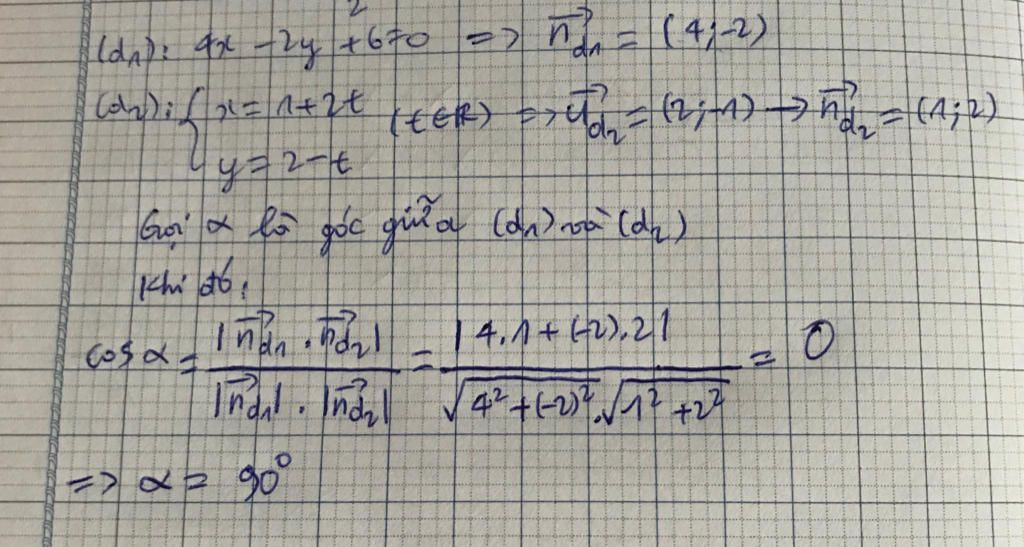 2
(d₁): 4x - 2y + 6 = 0 => n⃗_d₁ = (4; -2)
(d₂): { x = 1 + 2t (t∈R) => u⃗_d₂ = (2; -1) → n⃗_d₂ = (1; 2)
y = 2 - t
Gọi α là góc giữa (d₁) và (d₂)
Khi đó:
cos α = |n⃗_d₁ . n⃗_d₂| / |n⃗_d₁| . |n⃗_d₂| = |4.1 + (-2).2| / √(4² + (-2)²) . √(1² + 2²) = 0
=> α = 90°